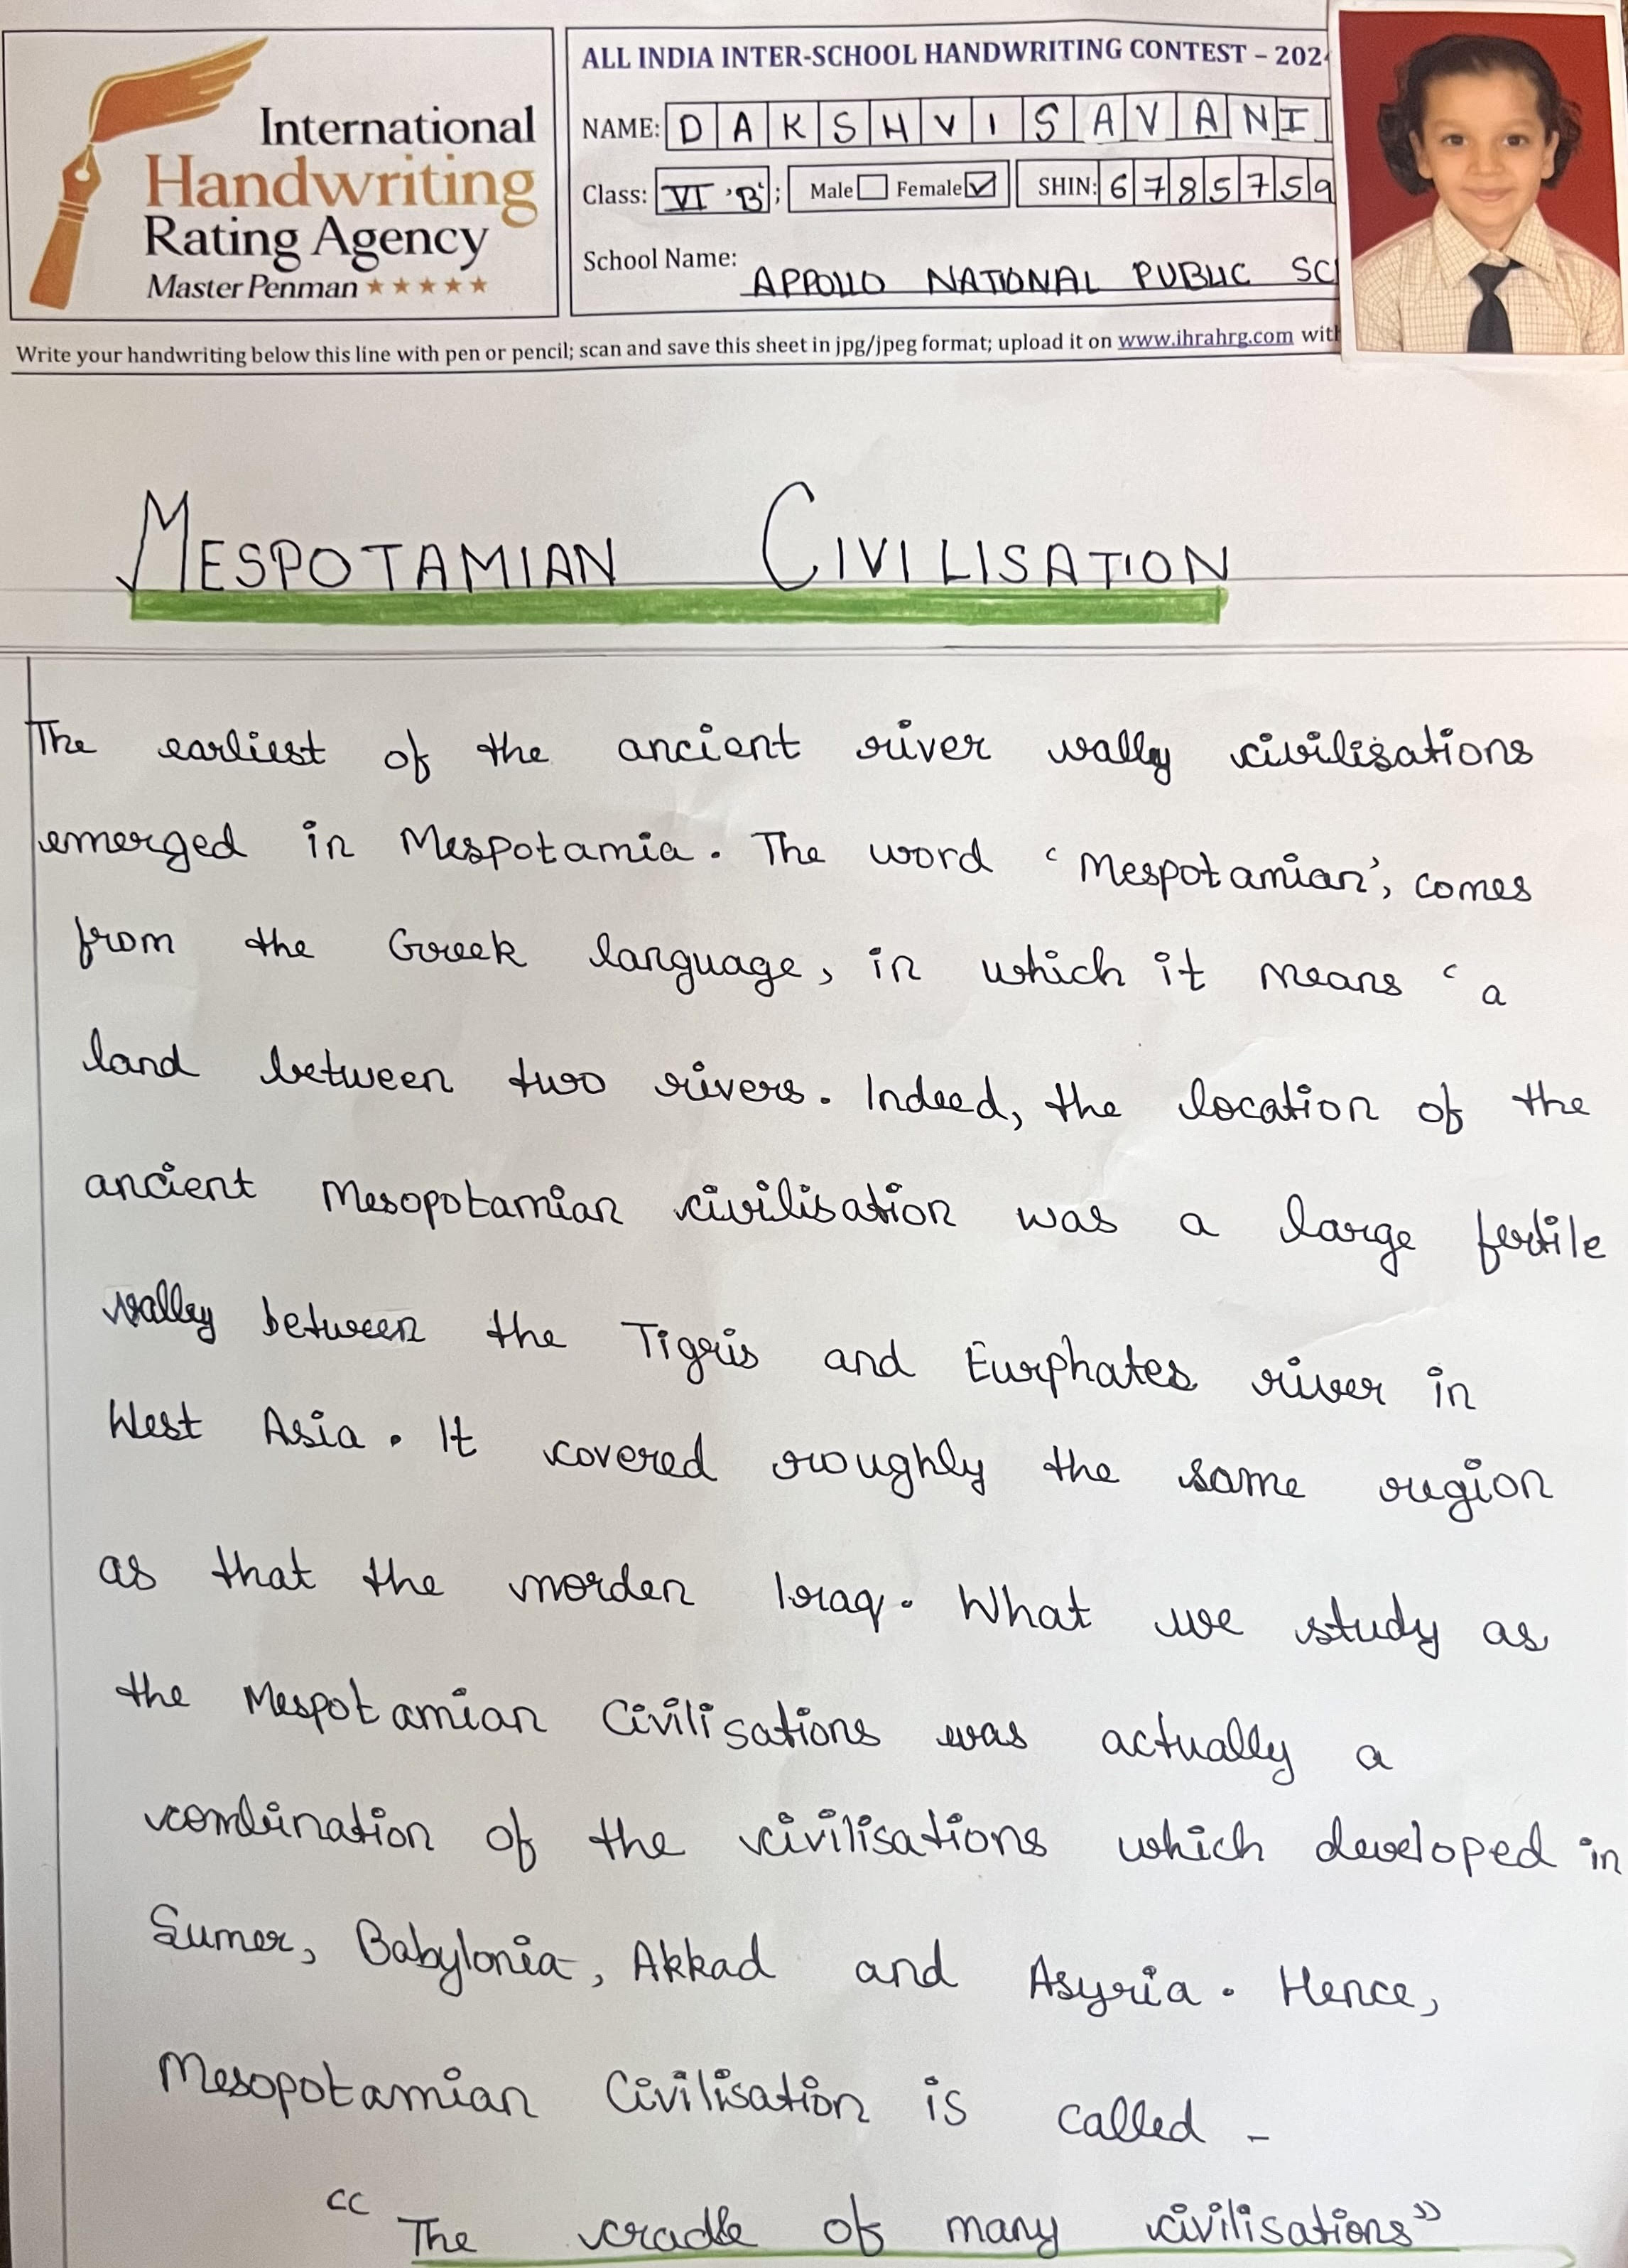 International
Handwriting
Rating Agency
Master Penman
ALL INDIA INTER-SCHOOL HANDWRITING CONTEST – 202
NAME: DAKSHVI SAVANI
Class: VI 'B'; Male Female SHIN: 6785759
School Name: APPOLLO NATIONAL PUBLIC SC
Write your handwriting below this line with pen or pencil; scan and save this sheet in jpg/jpeg format; upload it on www.ihrahrg.com with
MESPOTAMIAN CIVILISATION
The earliest of the ancient river vally civilisations
emerged in Mespotamia. The word ‘Mespotamian’, comes
from the Greek language, in which it means ‘ a
land between two rivers. Indeed, the location of the
ancient Mesopotamian civilisation was a large fertile
valley between the Tigris and Eurphates river in
West Asia. It covered roughly the same region
as that the morden Iraq. What we study as
the Mespotamian Civilisations was actually a
combination of the civilisations which developed in
Sumer, Babylonia, Akkad and Asyria. Hence,
Mesopotamian Civilisation is called -
“The cradle of many civilisations”